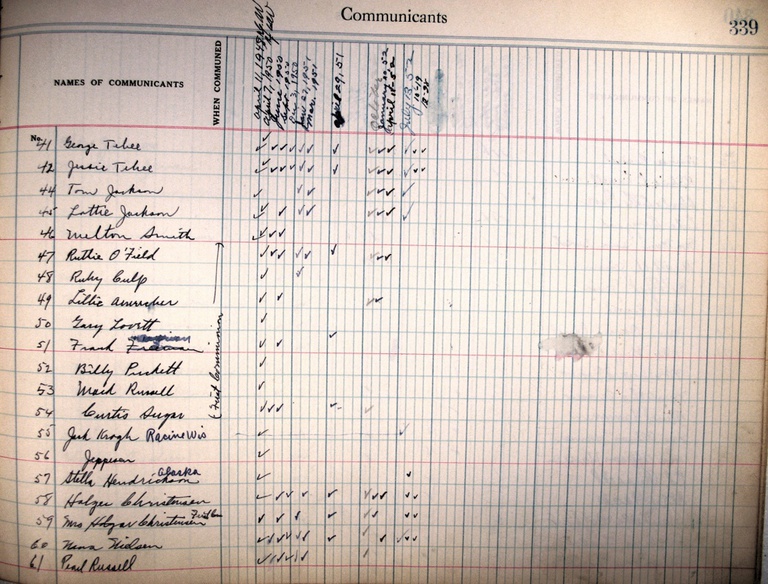 Communicants
339
NAMES OF COMMUNICANTS
WHEN COMMUNED
April 7, 1950
June 1950
Jan 27, 1951
Mar. 1951
April 29, 51
January 20, 52
April 52
July 13, 52
No.
41 George Tibee
42 Jessie Tibee
44 Tom Jackson
45 Lottie Jackson
46 Melton Smith
47 Ruthie O'Field
48 Ruby Culp
49 Lillie
50 Gary Lovitt
51 Frank
52 Billy Puckett
53 Maid Russell
54 Curtis Sugar
(First Communion
55 Jack Krogh Racine Wis
56 Jeppesen
57 Stella Hendrickson Alaska
58 Holger Christensen
59 Mrs Holger Christensen
60 Nina Nielsen
61 Pearl Russell